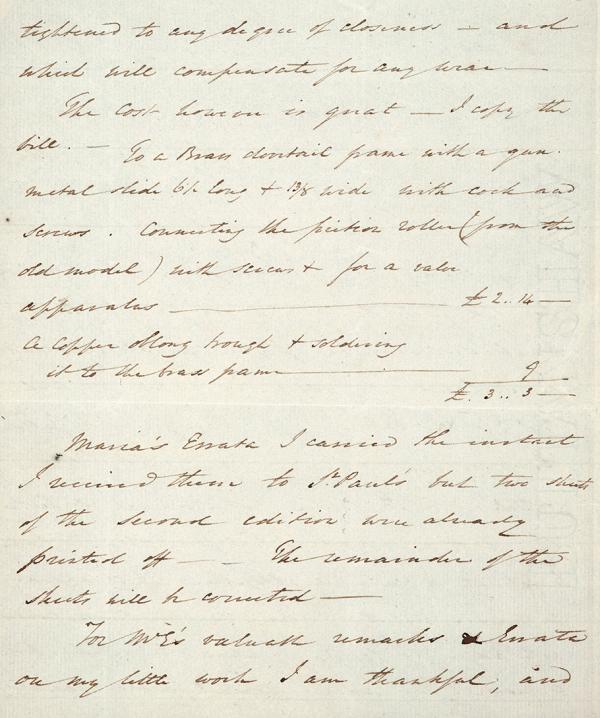 tightened to any degree of closeness – and
which will compensate for any wear —
The cost however is great — I copy the
bill. — To a Brass dovetail frame with a gun-
metal slide 6½ long + 1 3/8 wide with cock and
screws. Connecting the friction roller (from the
old model) with screws + for a valve
apparatus — £ 2.. 14 —
A Copper oblong trough + soldering
it to the brass frame — 9
£. 3.. 3 —
Maria's Errata I carried the instant
I received them to St. Paul's but two sheets
of the second edition were already
printed off — — The remainder of the
sheets will be corrected —
For Mr E's valuable remarks & Errata
on my little work I am thankful, and